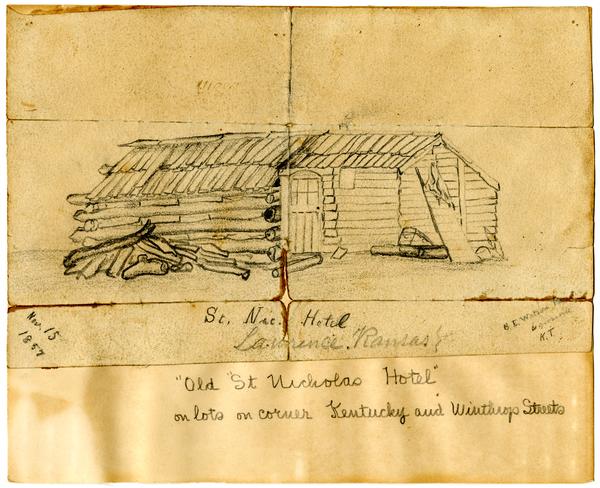 St. Nic. Hotel
Lawrence. Kansas
Nov. 15
1857
K.T.
"Old "St Nicholas Hotel"
on lots on corner Kentucky and Winthrop Streets